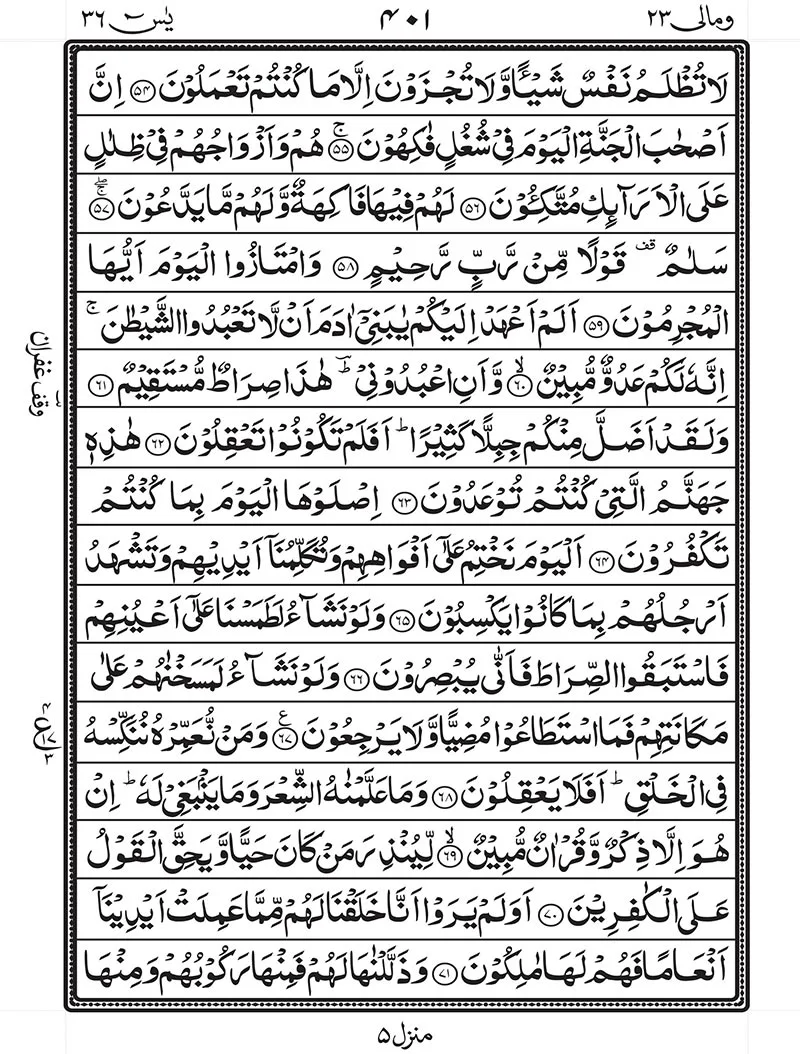 ومالی ٢٣
٤٠١
یٰسٓ ٣٦
لَا تُظْلَمُ نَفْسٌ شَيْـًٔا وَّلَا تُجْزَوْنَ اِلَّا مَا كُنْتُمْ تَعْمَلُوْنَ ﴿٥٤﴾ اِنَّ
اَصْحٰبَ الْجَنَّةِ الْيَوْمَ فِيْ شُغُلٍ فٰكِهُوْنَ ۚ﴿٥٥﴾ هُمْ وَاَزْوَاجُهُمْ فِيْ ظِلٰلٍ
عَلَى الْاَرَآئِكِ مُتَّكِـُٔوْنَ ﴿٥٦﴾ لَهُمْ فِيْهَا فَاكِهَةٌ وَّلَهُمْ مَّا يَدَّعُوْنَ ۚۖ﴿٥٧﴾
سَلٰمٌ ۟ قف قَوْلًا مِّنْ رَّبٍّ رَّحِيْمٍ ﴿٥٨﴾ وَامْتَازُوا الْيَوْمَ اَيُّهَا
الْمُجْرِمُوْنَ ﴿٥٩﴾ اَلَمْ اَعْهَدْ اِلَيْكُمْ يٰبَنِيْٓ اٰدَمَ اَنْ لَّا تَعْبُدُوا الشَّيْطٰنَ ۚ
اِنَّهٗ لَكُمْ عَدُوٌّ مُّبِيْنٌ ۙ﴿٦٠﴾ وَّاَنِ اعْبُدُوْنِيْ ؕ هٰذَا صِرَاطٌ مُّسْتَقِيْمٌ ﴿٦١﴾
وَلَقَدْ اَضَلَّ مِنْكُمْ جِبِلًّا كَثِيْرًا ؕ اَفَلَمْ تَكُوْنُوْا تَعْقِلُوْنَ ﴿٦٢﴾ هٰذِهٖ
جَهَنَّمُ الَّتِيْ كُنْتُمْ تُوْعَدُوْنَ ﴿٦٣﴾ اِصْلَوْهَا الْيَوْمَ بِمَا كُنْتُمْ
تَكْفُرُوْنَ ﴿٦٤﴾ اَلْيَوْمَ نَخْتِمُ عَلٰٓى اَفْوَاهِهِمْ وَتُكَلِّمُنَآ اَيْدِيْهِمْ وَتَشْهَدُ
اَرْجُلُهُمْ بِمَا كَانُوْا يَكْسِبُوْنَ ﴿٦٥﴾ وَلَوْ نَشَآءُ لَطَمَسْنَا عَلٰٓى اَعْيُنِهِمْ
فَاسْتَبَقُوا الصِّرَاطَ فَاَنّٰى يُبْصِرُوْنَ ﴿٦٦﴾ وَلَوْ نَشَآءُ لَمَسَخْنٰهُمْ عَلٰى
مَكَانَتِهِمْ فَمَا اسْتَطَاعُوْا مُضِيًّا وَّلَا يَرْجِعُوْنَ ﴿٦٧﴾ ع وَمَنْ نُّعَمِّرْهُ نُنَكِّسْهُ
فِي الْخَلْقِ ؕ اَفَلَا يَعْقِلُوْنَ ﴿٦٨﴾ وَمَا عَلَّمْنٰهُ الشِّعْرَ وَمَا يَنْۢبَغِيْ لَهٗ ؕ اِنْ
هُوَ اِلَّا ذِكْرٌ وَّقُرْاٰنٌ مُّبِيْنٌ ۙ﴿٦٩﴾ لِّيُنْذِرَ مَنْ كَانَ حَيًّا وَّيَحِقَّ الْقَوْلُ
عَلَى الْكٰفِرِيْنَ ﴿٧٠﴾ اَوَلَمْ يَرَوْا اَنَّا خَلَقْنَا لَهُمْ مِّمَّا عَمِلَتْ اَيْدِيْنَآ
اَنْعَامًا فَهُمْ لَهَا مٰلِكُوْنَ ﴿٧١﴾ وَذَلَّلْنٰهَا لَهُمْ فَمِنْهَا رَكُوْبُهُمْ وَمِنْهَا
وقف غفران
منزل ٥